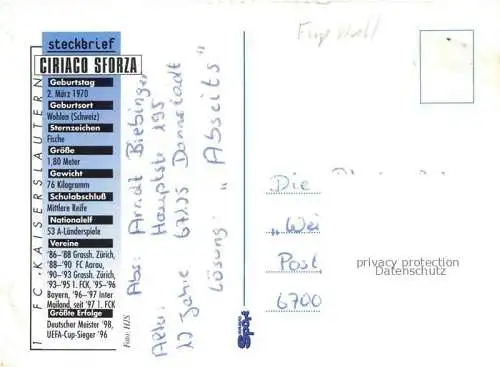 steckbrief
CIRIACO SFORZA
Geburtstag
2. März 1970
Geburtsort
Wohlen (Schweiz)
Sternzeichen
Fische
Größe
1,80 Meter
Gewicht
76 Kilogramm
Schulabschluß
Mittlere Reife
Nationalelf
53 A-Länderspiele
Vereine
'86–'88 Grassh. Zürich,
'88–'90 FC Aarau,
'90–'93 Grassh. Zürich,
'93–'95 1. FCK, '95–'96
Bayern, '96–'97 Inter
Mailand, seit '97 1. FCK
Größte Erfolge
Deutscher Meister '98,
UEFA-Cup-Sieger '96
1. FC KAISERSLAUTERN
Foto: HJS
Abs: Arndt Biebinger
Hauptstr 195
67125 Dannstadt
Alter: 17 Jahre
Lösung: "Abseits"
Die
"Wei
Post
6700
privacy protection
Datenschutz